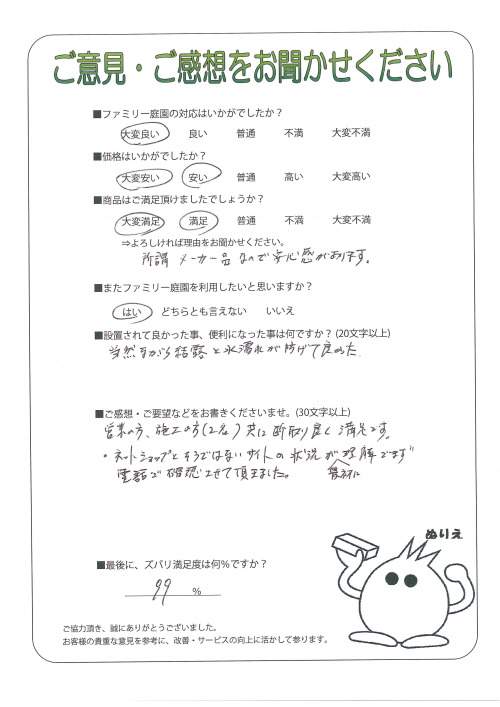 ご意見・ご感想をお聞かせください
■ファミリー庭園の対応はいかがでしたか？
大変良い 良い 普通 不満 大変不満
■価格はいかがでしたか？
大変安い 安い 普通 高い 大変高い
■商品はご満足頂けましたでしょうか？
大変満足 満足 普通 不満 大変不満
⇒よろしければ理由をお聞かせください。
所謂メーカー品なので安心感があります。
■またファミリー庭園を利用したいと思いますか？
はい どちらとも言えない いいえ
■設置されて良かった事、便利になった事は何ですか？(20文字以上)
当然ながら結露と水濡れが防げて良かった
■ご感想・ご要望などをお書きくださいませ。(30文字以上)
営業の方、施工の方(2名)共に断取り良く満足です。
・ネットショップとそうではないサイトの状況が理解できず
電話で確認させて頂きました。
■最後に、ズバリ満足度は何％ですか？
99 %
ぬりえ
ご協力頂き、誠にありがとうございました。
お客様の貴重な意見を参考に、改善・サービスの向上に活かして参ります。